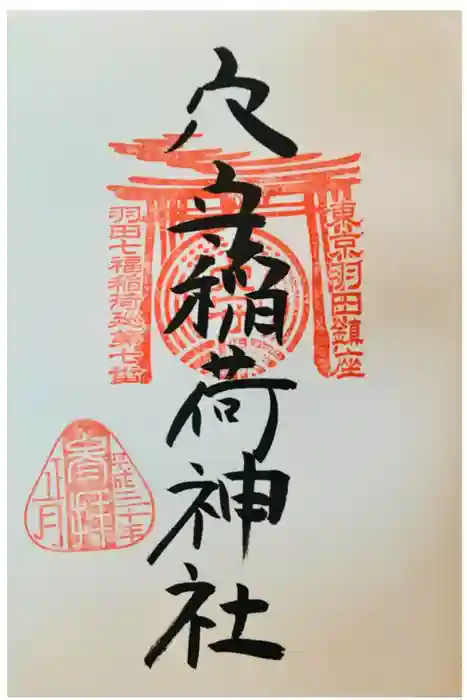 東京羽田鎮座
穴守稲荷神社
羽田七福稲荷巡第七番
平成三十年
参拝
正月